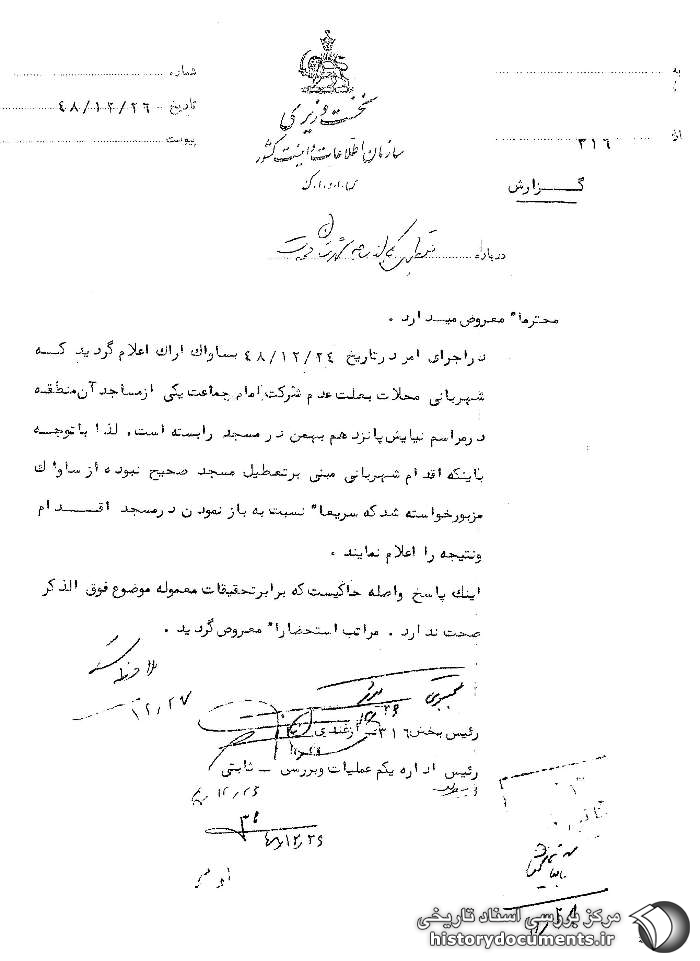 نخست وزیری
سازمان اطلاعات و امنیت کشور
س.ا.و.ا.ک
به
شماره
تاریخ ۴۸/۱۲/۲۶
پیوست
از ۳۱۶
گـــزارش
درباره
محترما" معروض میدارد .
دراجرای امر درتاریخ ۴۸/۱۲/۲۴ بساواک اراک اعلام گردید کــه
شهربانی محلات بعلت عدم شرکت امام جماعت یکی ازمساجد آن منطقه
درمراسم نیایش پانزدهم بهمن درمسجد رابسته است. لذا باتوجه
باینکه اقدام شهربانی مبنی برتعطیل مسجد صحیح نبوده از ساواک
مزبورخواسته شد که سریعا" نسبت به باز نمودن درمسجد اقــدام
ونتیجه را اعلام نمایند .
اینک پاسخ واصله حاکیست که برابرتحقیقات معموله موضوع فوق الذکر
صحت ندارد . مراتب استحضارا" معروض گردید .
ملاحظه شد
۱۲/۲۷
رئیس بخش ۳۱۶ـ ازغندی
رئیس اداره یکم عملیات وبررسی ـ ثابتی
۱۲/۲۶
۴۸/۱۲/۲۶
مرکز بررسی اسناد تاریخی
historydocuments.ir